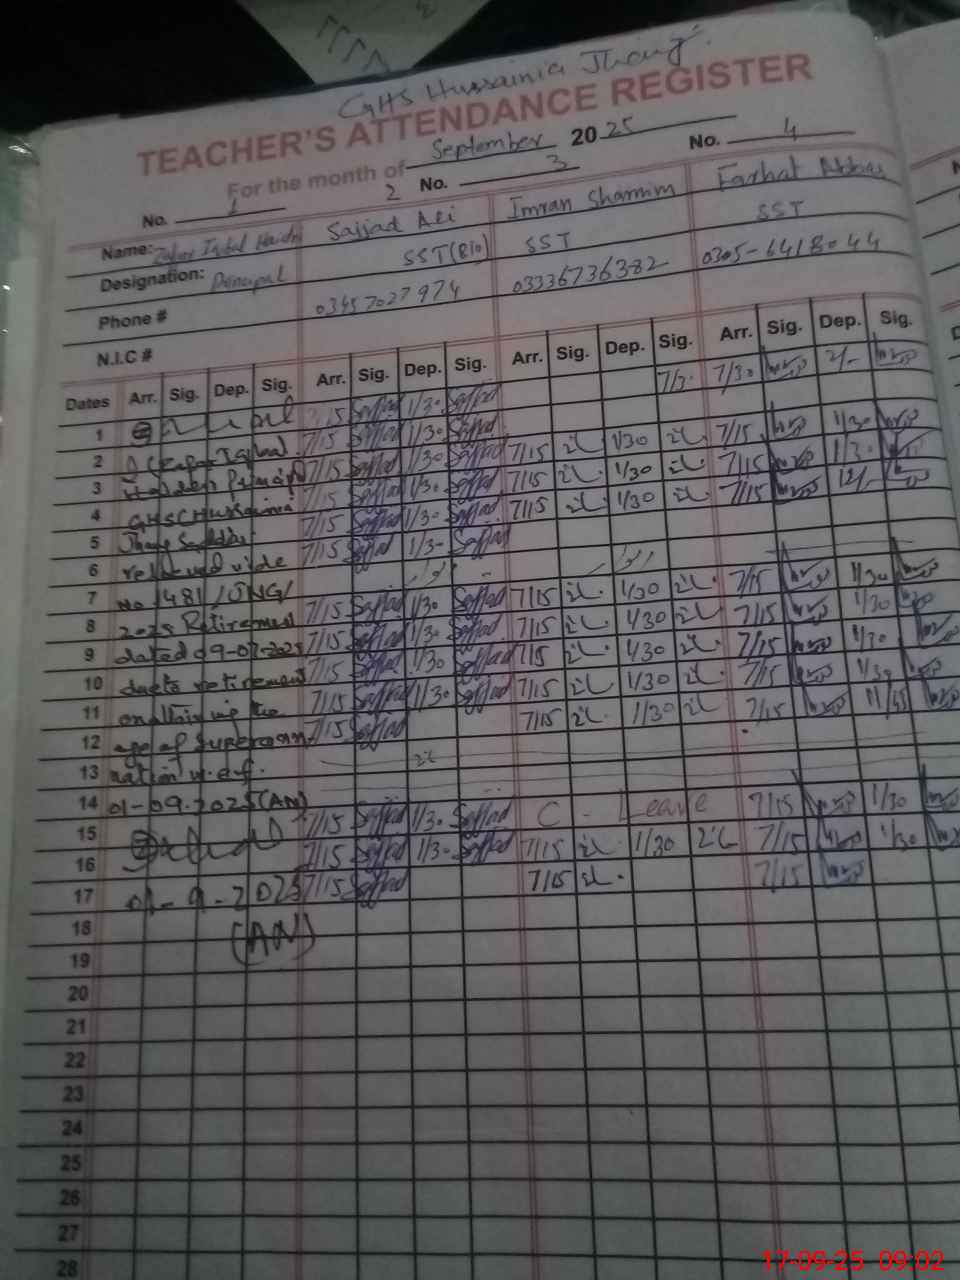 GHS Hussainia Jhang
TEACHER'S ATTENDANCE REGISTER
For the month of September 2025
No. 1 2 No. 3 No. 4
Name: Zafar Iqbal Haidri Sajjad Ali Imran Shamim Farhat Abbas
Designation: Principal SST(Bio) SST SST
Phone # 03457027974 03336736382 0305-6418044
N.I.C #
Dates Arr. Sig. Dep. Sig. Arr. Sig. Dep. Sig. Arr. Sig. Dep. Sig. Arr. Sig. Dep. Sig.
1 7/15 Sajjad 1/30 Sajjad 7/30
2 I Zafar Iqbal 7/15 Sajjad 1/30 Sajjad 7/15 1/30 7/15 1/30
3 Haideri Principal 7/15 Sajjad 1/30 Sajjad 7/15 1/30 7/15 1/30
4 GHSC Hussainia 7/15 Sajjad 1/30 Sajjad 7/15 1/30 7/15 12/-
5 Jhang Saddar 7/15 Sajjad 1/30 Sajjad
6 relieved vide 7/15 Sajjad 1/30 Sajjad
7 No 1481/JNG/
8 2025 Retirement 7/15 Sajjad 1/30 Sajjad 7/15 1/30 7/15 1/30
9 dated 09-07-2025 7/15 Sajjad 1/30 Sajjad 7/15 1/30 7/15 1/30
10 due to retirement 7/15 Sajjad 1/30 Sajjad 7/15 1/30 7/15 1/30
11 on attaining the 7/15 Sajjad 1/30 Sajjad 7/15 1/30 7/15 1/30
12 age of superann 7/15 Sajjad 7/15 1/30 7/15 11/45
13 nation w.e.f.
14 01-09-2025(AN)
15 7/15 Sajjad 1/30 Sajjad C - Leave 7/15 1/30
16 7/15 Sajjad 1/30 Sajjad 7/15 1/30 7/15 1/30
17 01-9-2025 7/15 Sajjad 7/15 7/15
18 (AN)
19
20
21
22
23
24
25
26
27
28
17-09-25 09:02